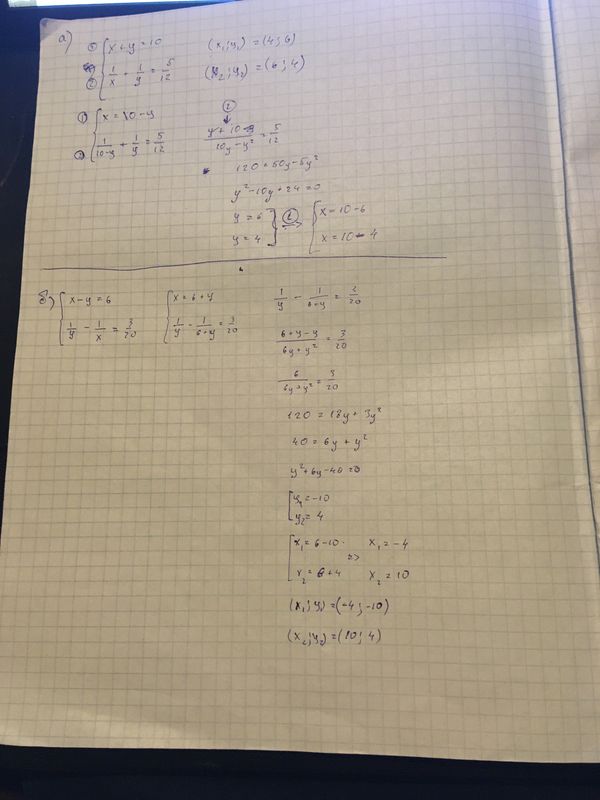 а) ① { x + y = 10
② { 1/x + 1/y = 5/12
(x₁; y₁) = (4; 6)
(x₂; y₂) = (6; 4)
① { x = 10 - y
② { 1/(10-y) + 1/y = 5/12
②
↓
(y + 10 - y)/(10y - y²) = 5/12
120 = 50y - 5y²
y² - 10y + 24 = 0
y = 6
y = 4
} ① => { x = 10 - 6
x = 10 - 4
б) { x - y = 6
{ 1/y - 1/x = 3/20
{ x = 6 + y
{ 1/y - 1/(6+y) = 3/20
1/y - 1/(6+y) = 3/20
(6 + y - y)/(6y + y²) = 3/20
6/(6y + y²) = 3/20
120 = 18y + 3y²
40 = 6y + y²
y² + 6y - 40 = 0
[ y₁ = -10
[ y₂ = 4
[ x₁ = 6 - 10 => x₁ = -4
[ x₂ = 6 + 4 x₂ = 10
(x₁; y₁) = (-4; -10)
(x₂; y₂) = (10; 4)